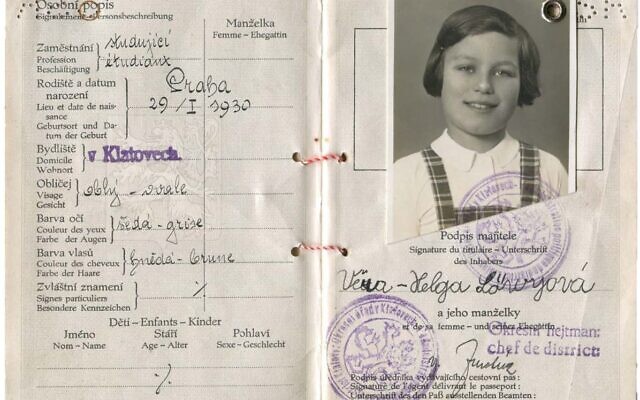 Osobní popis
Signalement - Personsbeschreibung
Manželka
Femme - Ehegattin
Zaměstnání
Profession
Beschäftigung
studující
étudiant
Rodiště a datum
narození
Lieu et date de nais-
sance
Geburtsort und Da-
tum der Geburt
Praha
29/I 1930
Bydliště
Domicile
Wohnort
v Klatovech
Obličej
Visage
Gesicht
oblý - ovale
Barva očí
Couleur des yeux
Farbe der Augen
šedá - grise
Barva vlasů
Couleur des cheveux
Farbe der Haare
hnědá - brune
Zvláštní znamení
Signes particuliers
Besondere Kennzeichen
Děti - Enfants - Kinder
Jméno
Nom - Name
Stáří
Age - Alter
Pohlaví
Sexe - Geschlecht
Podpis majitele
Signature du titulaire - Unterschrift
des Inhabers
Věra - Helga
a jeho manželky
et de sa femme - und seiner Ehegattin
Okresní hejtman:
chef de district:
Podpis úředníka vydávajícího cestovní pas:
Signature de l'agent délivrant le passeport:
Unterschrift des den Paß ausstellenden Beamten: